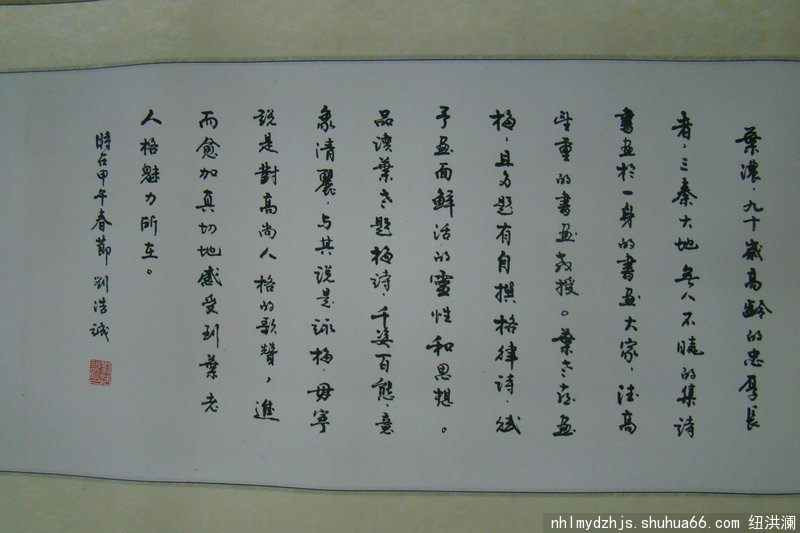 葉濃，九十歲高齡的忠厚長
者，三秦大地無人不曉的集詩
書畫於一身的書畫大家，德高
望重的書畫教授。葉老喜畫
梅，且多題有自撰格律詩，賦
予畫面鮮活的靈性和思想。
品讀葉老題梅詩，千姿百態，意
象清麗，与其說是詠梅，毋寧
說是對高尚人格的歌贊，進
而愈加真切地感受到葉老
人格魅力所在。
時在甲午春節 劉浩誠
nhlmydzhjs.shuhua66.com 纽洪澜